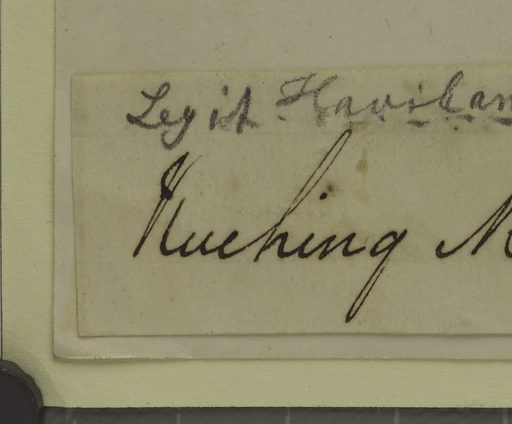 Legit Havilan
Kuching M